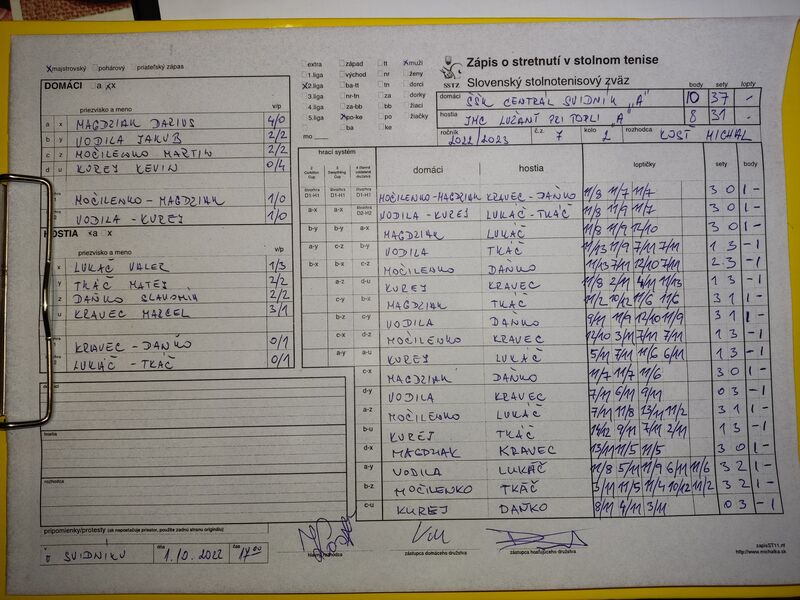 Zápis o stretnutí v stolnom tenise
Slovenský stolnotenisový zväz
SSTZ
xmajstrovský pohárový priateľský zápas
extra západ tt xmuži
1.liga východ nr ženy
x2.liga ba-tt tn dorci
3.liga nr-tn za dorky
4.liga za-bb bb žiaci
5.liga xpo-ke po žiačky
mo ba ke
domáci ČŠK CENTRAL SVIDNÍK "A" body 10 sety 37 lopty -
hostia JMC LUŽANY PRI TOPLI "A" 8 31 -
ročník 2022/2023 č.z. 7 kolo 2 rozhodca KOSŤ MICHAL
DOMÁCI a xx
priezvisko a meno v/p
a x MAGDZIAK DARIUS 4/0
b y VODILA JAKUB 2/2
c z MOČILENKO MARTIN 2/2
d u KUREJ KEVIN 0/4
MOČILENKO - MAGDZIAK 1/0
VODILA - KUREJ 1/0
HOSTIA xa x
priezvisko a meno v/p
x LUKÁČ VALER 1/3
y TKÁČ MATEJ 2/2
z DAŇKO SLAVOMÍR 2/2
u KRAVEC MARCEL 3/1
KRAVEC - DAŇKO 0/1
LUKÁČ - TKÁČ 0/1
hrací systém domáci hostia loptičky sety body
MOČILENKO-MAGDZIAK KRAVEC - DAŇKO 11/8 11/7 11/7 3 0 1 -
VODILA - KUREJ LUKÁČ - TKÁČ 11/8 11/9 11/7 3 0 1 -
b-y b-y a-x MAGDZIAK LUKÁČ 11/8 11/9 12/10 3 0 1 -
a-y c-z b-y VODILA TKÁČ 11/13 11/9 7/11 7/11 1 3 - 1
b-x b-x c-z MOČILENKO DAŇKO 11/13 7/11 12/10 7/11 2 3 - 1
a-z d-u KUREJ KRAVEC 11/8 2/11 4/11 11/13 1 3 - 1
c-y b-x MAGDZIAK TKÁČ 11/2 10/12 11/6 11/6 3 1 1 -
b-z c-y VODILA DAŇKO 9/11 11/9 12/10 11/9 3 1 1 -
c-x d-z MOČILENKO KRAVEC 12/10 3/11 7/11 7/11 1 3 - 1
a-y a-u KUREJ LUKÁČ 5/11 7/11 11/6 6/11 1 3 - 1
c-x MAGDZIAK DAŇKO 11/7 11/7 11/6 3 0 1 -
d-y VODILA KRAVEC 7/11 6/11 9/11 0 3 - 1
a-z MOČILENKO LUKÁČ 7/11 11/8 13/11 11/2 3 1 1 -
b-u KUREJ TKÁČ 14/12 9/11 7/11 2/11 1 3 - 1
d-x MAGDZIAK KRAVEC 13/11 11/5 11/5 3 0 1 -
a-y VODILA LUKÁČ 11/8 5/11 11/9 6/11 11/6 3 2 1 -
b-z MOČILENKO TKÁČ 3/11 11/5 11/4 10/12 11/2 3 2 1 -
c-u KUREJ DAŇKO 8/11 4/11 3/11 0 3 - 1
domáci
hostia
rozhodca
pripomienky/protesty (ak nepostačuje priestor, použite zadnú stranu originálu)
v SVIDNÍKU dňa 1.10.2022 čas 17 00
hlavný rozhodca zástupca domáceho družstva zástupca hosťujúceho družstva
zapisST11.rtf
http://www.michalka.sk